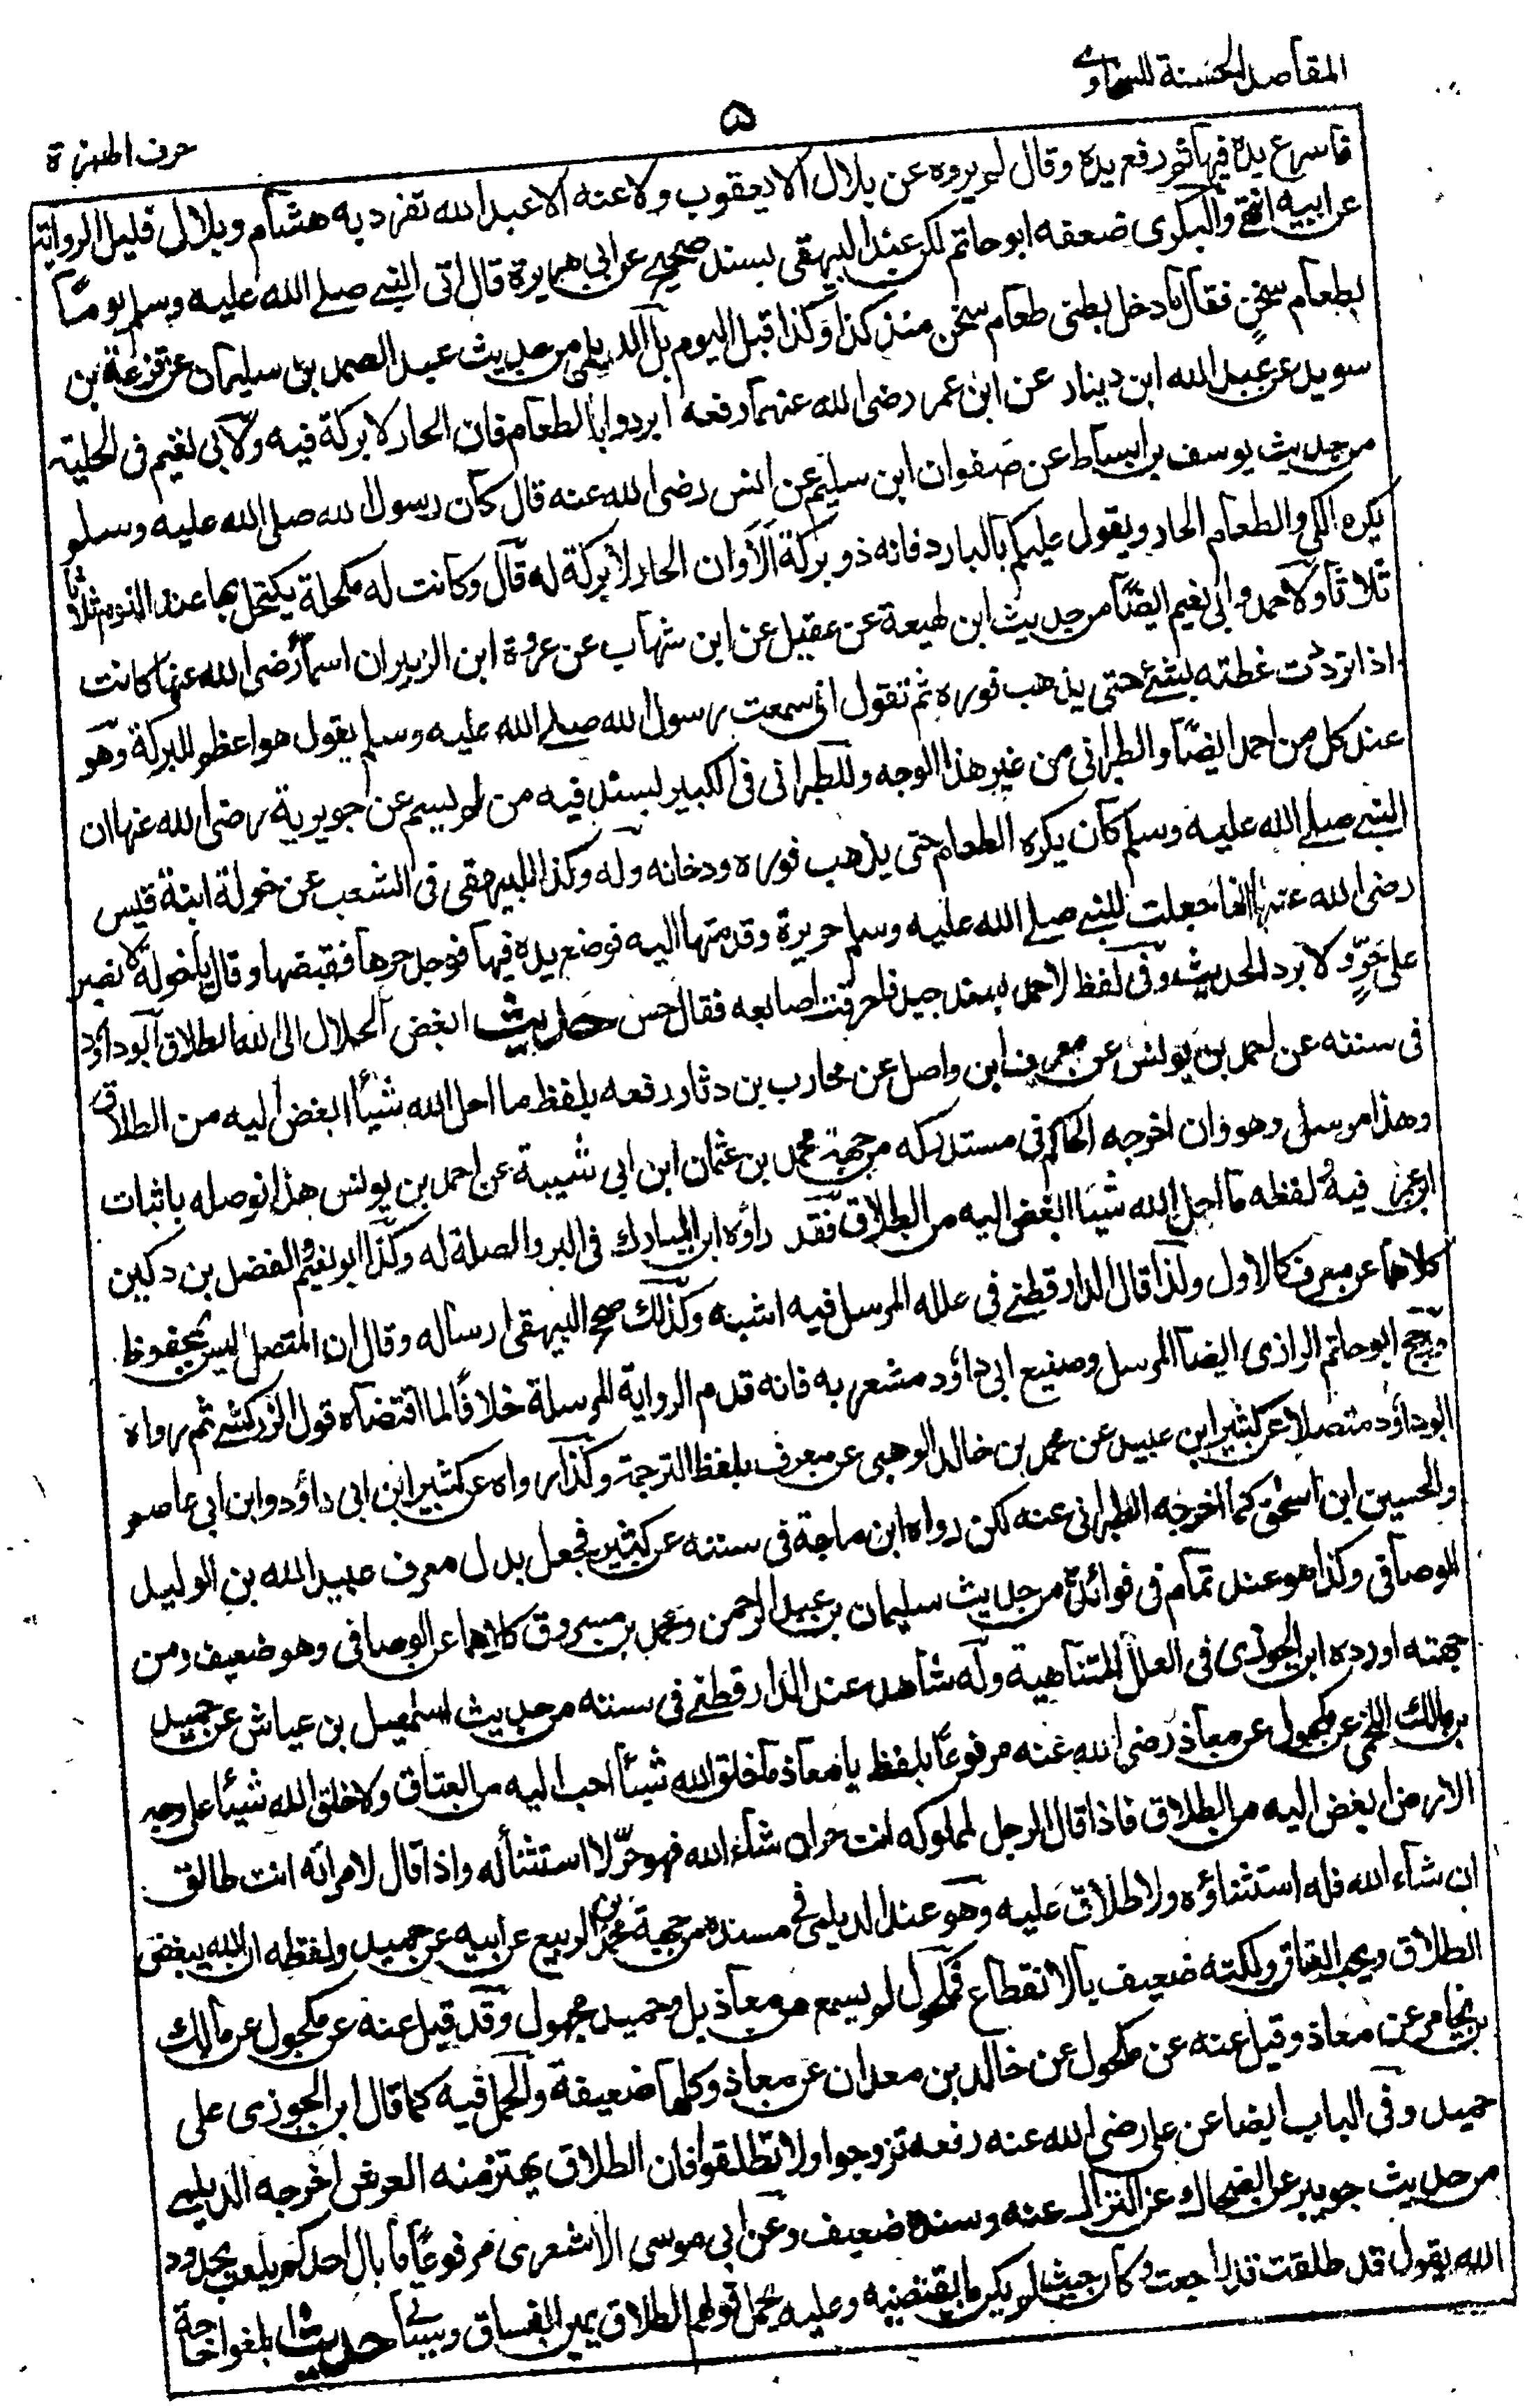 المقاصد الحسنة للسخاوي
۵
حرف الهمزة
فاسرع يده فيها ثم رفع يده وقال لم يروه عن بلال الا يعقوب ولا عنه الا عبد الله تفرد به هشام وبلال قليل الرواية
عن ابيه انتهى والبكرى ضعفه ابو حاتم لكن عند البيهقى بسند صحيح عن ابى هريرة قال اتى النبى صلى الله عليه وسلم يوما
بطعام سخن فقال ما دخل بطنى طعام سخن منذ كذا وكذا قبل اليوم بل الديلمى من حديث عبد الصمد بن سليمان عن قزعة بن
سويد عن عبد الله ابن دينار عن ابن عمر رضى الله عنهما رفعه ابردوا بالطعام فان الحار لا بركة فيه ولابى نعيم فى الحلية
من حديث يوسف بن اسباط عن صفوان ابن سليم عن انس رضى الله عنه قال كان رسول الله صلى الله عليه وسلم
يكره الكى والطعام الحار ويقول عليكم بالبارد فانه ذو بركة الا وان الحار لا بركة له قال وكانت له مكحلة يكتحل بها عند النوم ثلاثا
ثلاثا ولاحمد وابى نعيم ايضًا من حديث ابن لهيعة عن عقيل عن ابن شهاب عن عروة ابن الزبير ان اسمأ رضى الله عنها كانت
اذا ثردت غطته بشئ حتى يذهب فوره ثم تقول انى سمعت رسول الله صلى الله عليه وسلم يقول هو اعظم للبركة وهو
عند كل من احمد ايضًا والطبرانى من غير هذا الوجه وللطبرانى فى الكبير بسند فيه من لم يسم عن جويرية رضى الله عنها ان
النبى صلى الله عليه وسلم كان يكره الطعام حتى يذهب فوره ودخانه وله وكذا للبيهقى فى الشعب عن خولة ابنة قيس
رضى الله عنها انها جعلت للنبى صلى الله عليه وسلم حريرة وقدمتها اليه فوضع يده فيها فوجد حرها فقبضها وقال يا خولة لا نصبر
على حرّ ولا برد الحديث وفى لفظ لاحمد بسند جيد فاحرقت اصابعه فقال حس حديث ابغض الحلال الى الله الطلاق ابو داؤد
فى سننه عن احمد بن يونس عن معرف ابن واصل عن محارب بن دثار رفعه بلفظ ما احل الله شيأ ابغض اليه من الطلاق
وهذا مرسل وهو وان اخرجه الحاكم فى مستدركه من جهة محمد بن عثمان ابن ابى شيبة عن احمد بن يونس هذا نوصله باثبات
ابو عمر فيه ولفظه ما احل الله شيئا ابغض اليه من الطلاق فقد رأوه ابن المبارك فى البر والصلة له وكذا ابو نعيم والفضل بن دكين
كلاهما عن معرف كالاول ولذا قال الدارقطنى فى علله المرسل فيه اشبه وكذلك صحح البيهقى ارساله وقال ان المتصل ليس بمحفوظ
ورجح ابو حاتم الرازى ايضا المرسل وصنيع ابى داؤد مشعر به فانه قدم الرواية المرسلة خلافًا لما اقتضاه قول الزركشى ثم رواه
ابو داؤد متصلا عن كثير ابن عبيد عن محمد بن خالد الوهبى عن معرف بلفظ الترجمة وكذا رواه عن كثير ابن ابى داؤد وابن ابى عاصم
والحسين ابن اسحق كما اخرجه الطبرانى عنه لكن رواه ابن ماجة فى سننه عن كثير فجعل بدل معرف عبيد الله بن الوليد
الوصافى وكذا هو عند تمام فى فوائده من حديث سليمان بن عبد الرحمن ومحمد بن مسروق كلاهما عن الوصافى وهو ضعيف ومن
جهته اورده ابن الجوزى فى العلل المتناهية وله شاهد عند الدارقطنى فى سننه من حديث اسمعيل بن عياش عن حميد
بن مالك اللخمى عن مكحول عن معاذ رضى الله عنه مرفوعًا بلفظ يا معاذ ما خلق الله شيئا احب اليه من العتاق ولا خلق الله شيئا على وجه
الارض ابغض اليه من الطلاق فاذا قال الرجل لمملوكه انت حر ان شاء الله فهو حرّ لا استثنأ له واذا قال لامرأته انت طالق
ان شاء الله فله استثناؤه ولا طلاق عليه وهو عند الديلمى فى مسنده من جهة محمد بن الربيع عن ابيه عن حميد ولفظه ان الله يبغض
الطلاق ويحب العتاق ولكنه ضعيف بالانقطاع فمكحول لم يسمع من معاذ بل وحميد مجهول وقد قيل عنه عن مكحول عن مالك
بن يخامر عن معاذ وقيل عنه عن مكحول عن خالد بن معدان عن معاذ وكلها ضعيفة والحمل فيه كما قال ابن الجوزى على
حميد وفى الباب ايضا عن على رضى الله عنه رفعه تزوجوا ولا تطلقوا فان الطلاق يهتز منه العرش اخرجه الديلمى
من حديث جويبر عن الضحاك عن النزال عنه وسنده ضعيف وعن ابى موسى الاشعرى مرفوعًا ما بال احدكم يلعب بحدود
الله يقول قد طلقت قد راجعت وكان حيث لم يكن ما يقتضيه وعليه يحمل قولهم الطلاق يمين الفساق وسيأتى حديث ابلغوا حاجة